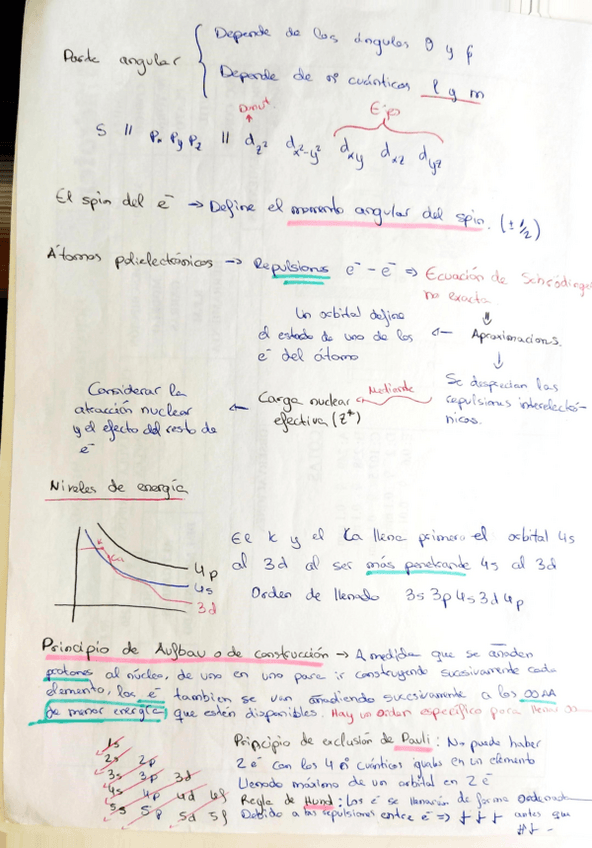 Parte angular
Depende de los ángulos θ y φ
Depende de nº cuánticos l y m
Donut
Eᵗps
S || Px Py Pz || dz² dx²-y² dxy dxz dyz
El spin del e⁻ → Define el momento angular del spin. (± 1/2)
Átomos polielectrónicos → Repulsiones e⁻ - e⁻ ⇒ Ecuación de Schrödinger
no exacta
⇓
Un orbital define
el estado de uno de los
e⁻ del átomo
← Aproximaciones.
↓
Se desprecian las
repulsiones interelectró-
nicas.
Mediante
Carga nuclear
efectiva (Z*)
← Considerar la
atracción nuclear
y el efecto del resto de
e⁻
Niveles de energía
K
Ca
4p
4s
3d
El K y el Ca llena primero el orbital 4s
al 3d al ser más penetrante 4s al 3d
Orden de llenado 3s 3p 4s 3d 4p
Principio de Aufbau o de construcción → A medida que se añaden
protones al núcleo, de uno en uno para ir construyendo sucesivamente cada
elemento, los e⁻ tambien se van añadiendo sucesivamente a los OOAA
de menor energía que estén disponibles. Hay un orden específico para llenar
1s
2s 2p
3s 3p 3d
4s 4p 4d 4f
5s 5p 5d 5f
Principio de exclusión de Pauli: No puede haber
2 e⁻ con los 4 nº cuánticos iguales en un elemento
Llenado máximo de un orbital en 2 e⁻
Regla de Hund: Los e⁻ se llenarán de forma
Debido a las repulsiones entre e⁻ ⇒ ↑ ↑ ↑ antes que
↑↓ ↑ -